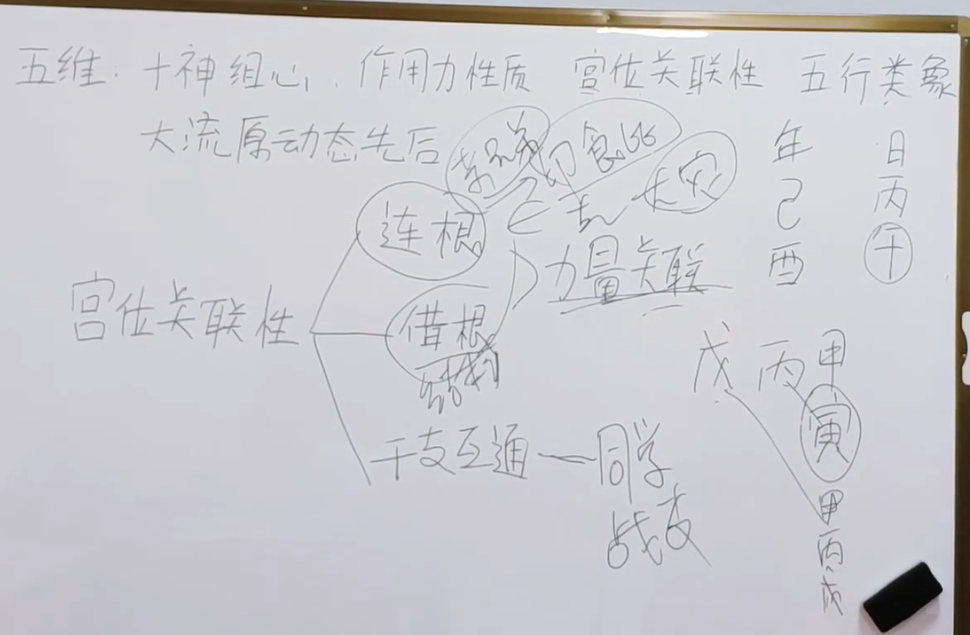 五维 十神组心 作用力性质 宫位关联性 五行类象
大流原动态先后
印食比
灾
年 日
己 丙
酉 午
连根
力量关联
宫位关联性
借根
戊 丙 甲
寅
干支互通 — 同学
战友
甲
丙
戊